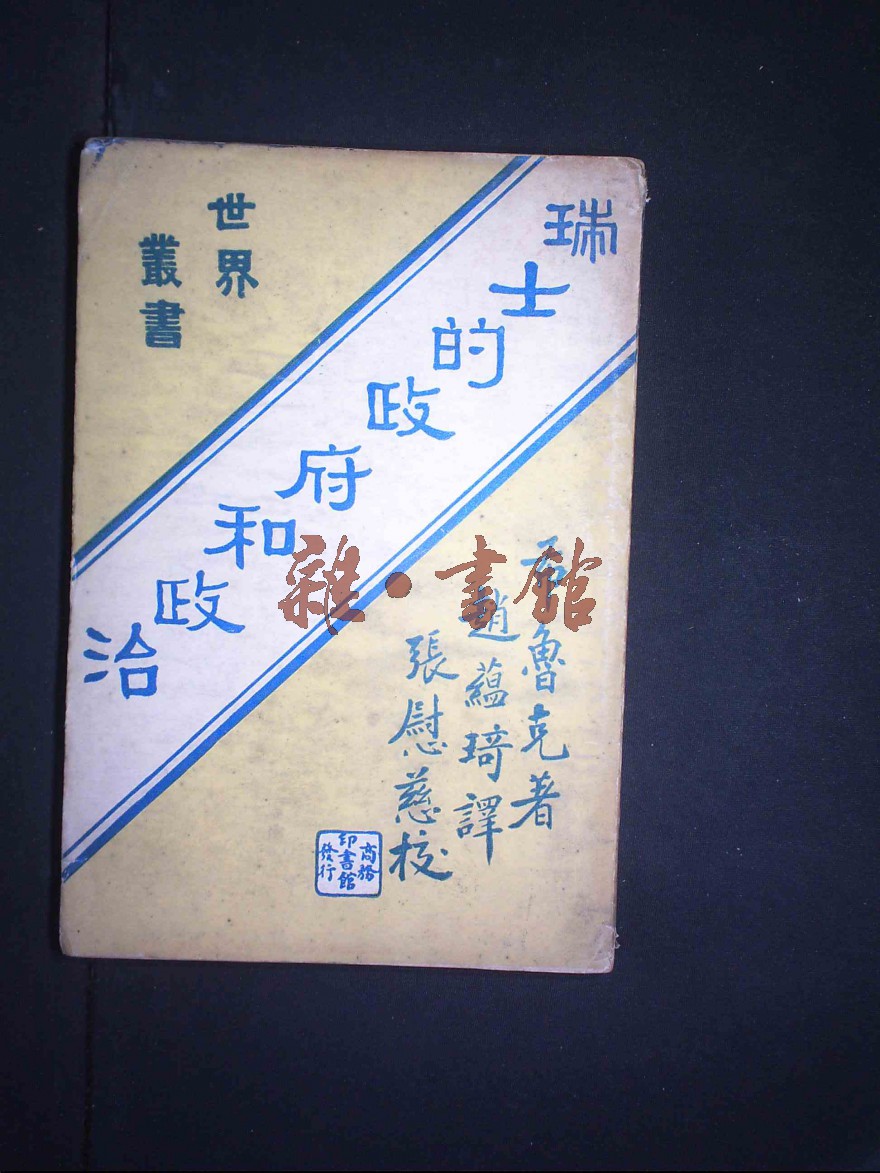 瑞士的政府和政治
世界
叢書
魯克著
趙蘊琦譯
張慰慈校
商務
印書館
發行
雜·書館